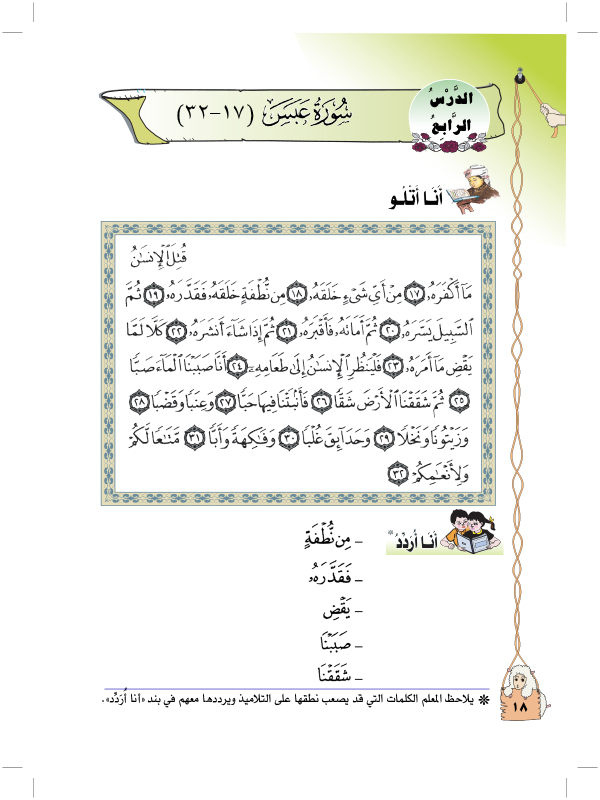 الدَّرْسُ
الرَّابِعُ
سُورَةُ عَبَسَ (١٧-٣٢)
أَنَا أَتْلُو
قُتِلَ الْإِنسَانُ
مَا أَكْفَرَهُ ١٧ مِنْ أَيِّ شَيْءٍ خَلَقَهُ ١٨ مِن نُّطْفَةٍ خَلَقَهُ فَقَدَّرَهُ ١٩ ثُمَّ
السَّبِيلَ يَسَّرَهُ ٢٠ ثُمَّ أَمَاتَهُ فَأَقْبَرَهُ ٢١ ثُمَّ إِذَا شَاءَ أَنشَرَهُ ٢٢ كَلَّا لَمَّا
يَقْضِ مَا أَمَرَهُ ٢٣ فَلْيَنظُرِ الْإِنسَانُ إِلَى طَعَامِهِ ٢٤ أَنَّا صَبَبْنَا الْمَاءَ صَبًّا
٢٥ ثُمَّ شَقَقْنَا الْأَرْضَ شَقًّا ٢٦ فَأَنبَتْنَا فِيهَا حَبًّا ٢٧ وَعِنَبًا وَقَضْبًا ٢٨
وَزَيْتُونًا وَنَخْلًا ٢٩ وَحَدَائِقَ غُلْبًا ٣٠ وَفَاكِهَةً وَأَبًّا ٣١ مَّتَاعًا لَّكُمْ
وَلِأَنْعَامِكُمْ ٣٢
أَنَا أُرَدِّدُ*
– مِن نُّطْفَةٍ
– فَقَدَّرَهُ
– يَقْضِ
– صَبَبْنَا
– شَقَقْنَا
* يلاحظ المعلم الكلمات التي قد يصعب نطقها على التلاميذ ويرددها معهم في بند «أنا أُرَدِّدُ».
١٨